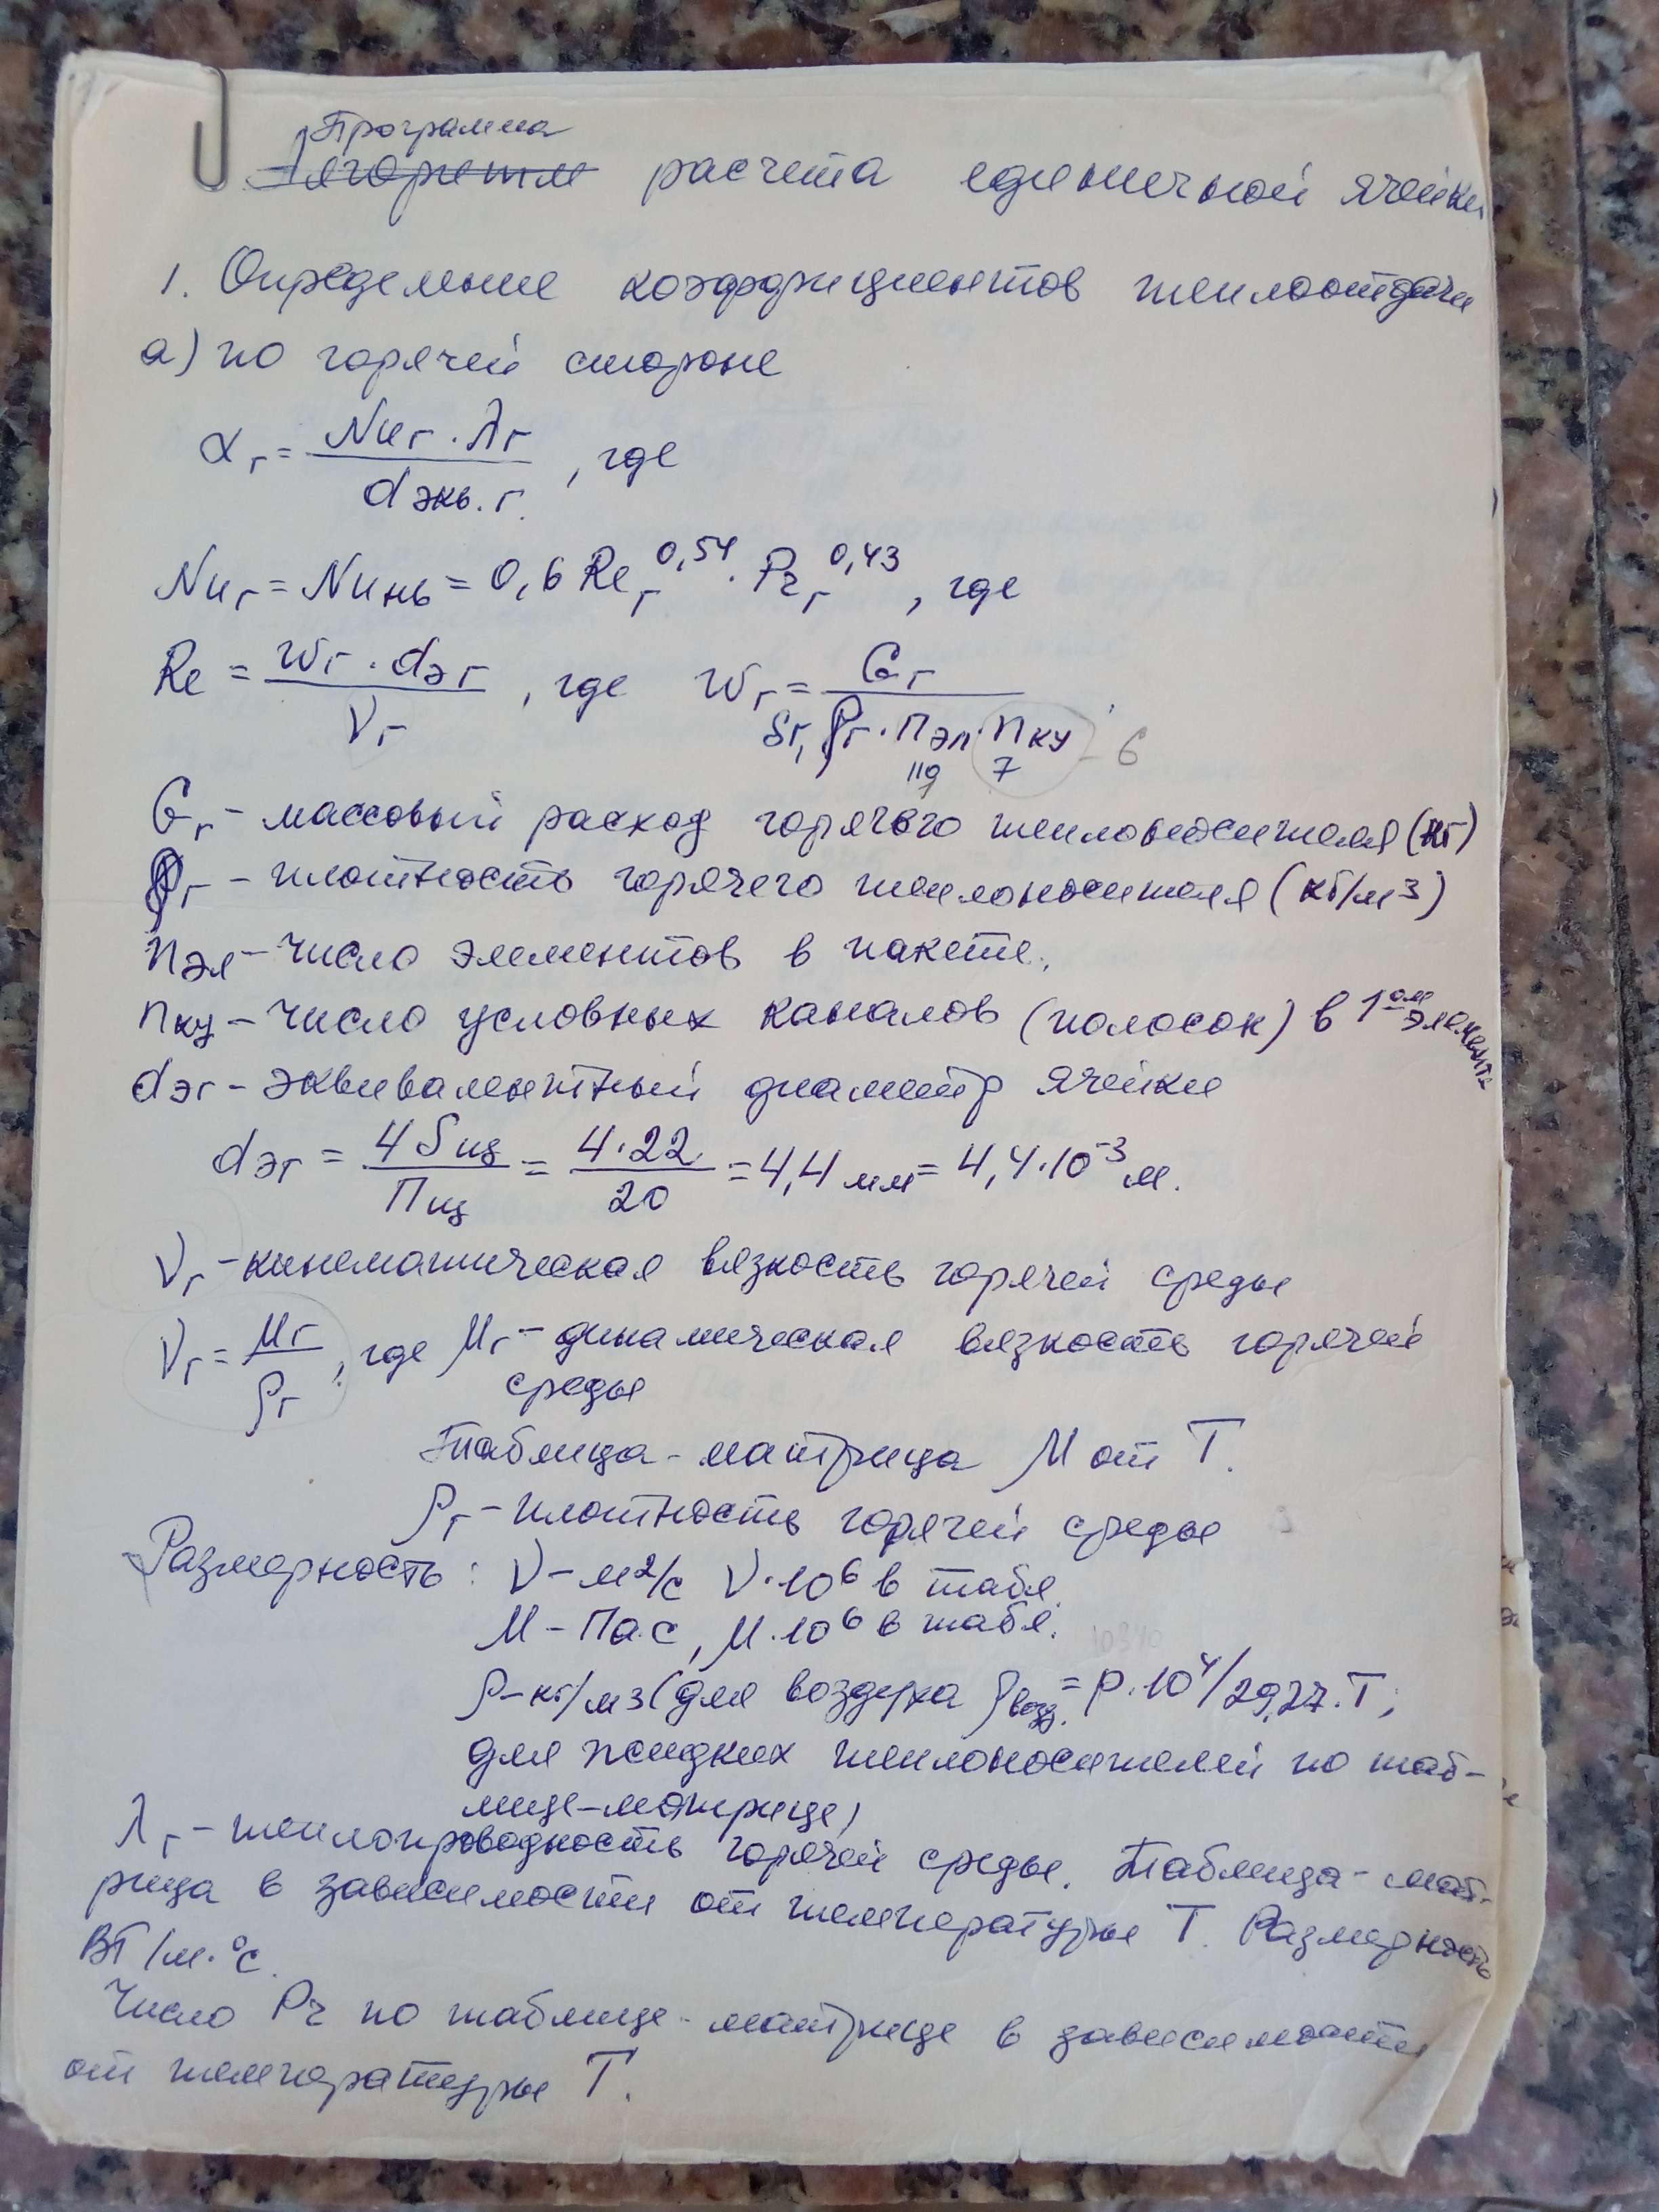 Программа
Алгоритм расчета единичной ячейки
1. Определение коэффициентов теплоотдачи
а) по горячей стороне
αг = Nuг · λг / dэкв.г. , где
Nuг = Nuнь = 0,6 Reг^0,54 · Prг^0,43 , где
Re = wг · dэг / νг , где wг = Gг / Sг, ρг · nэл · nку - 6
119 7
Gг - массовый расход горячего теплоносителя (кг)
ρг - плотность горячего теплоносителя (кг/м3)
nэл - число элементов в пакете.
nку - число условных каналов (полосок) в 1ом элементе
dэг - эквивалентный диаметр ячейки
dэг = 4Sяц / Пяц = 4·22 / 20 = 4,4 мм = 4,4·10^-3 м.
νг - кинематическая вязкость горячей среды
νг = μг / ρг , где μг - динамическая вязкость горячей
среды
Таблица - матрица μ от T.
ρг - плотность горячей среды
Размерность: ν - м2/с ν·10^6 в табл.
μ - Па.с, μ·10^6 в табл.
ρ - кг/м3 (для воздуха ρвозд. = р·10^4/29,27·T;
для жидких теплоносителей по таб-
лице-матрице)
λг - теплопроводность горячей среды. Таблица - мат-
рица в зависимости от температуры T. Размерность
Вт/м·°с.
Число Pr по таблице-матрице в зависимости
от температуры T.